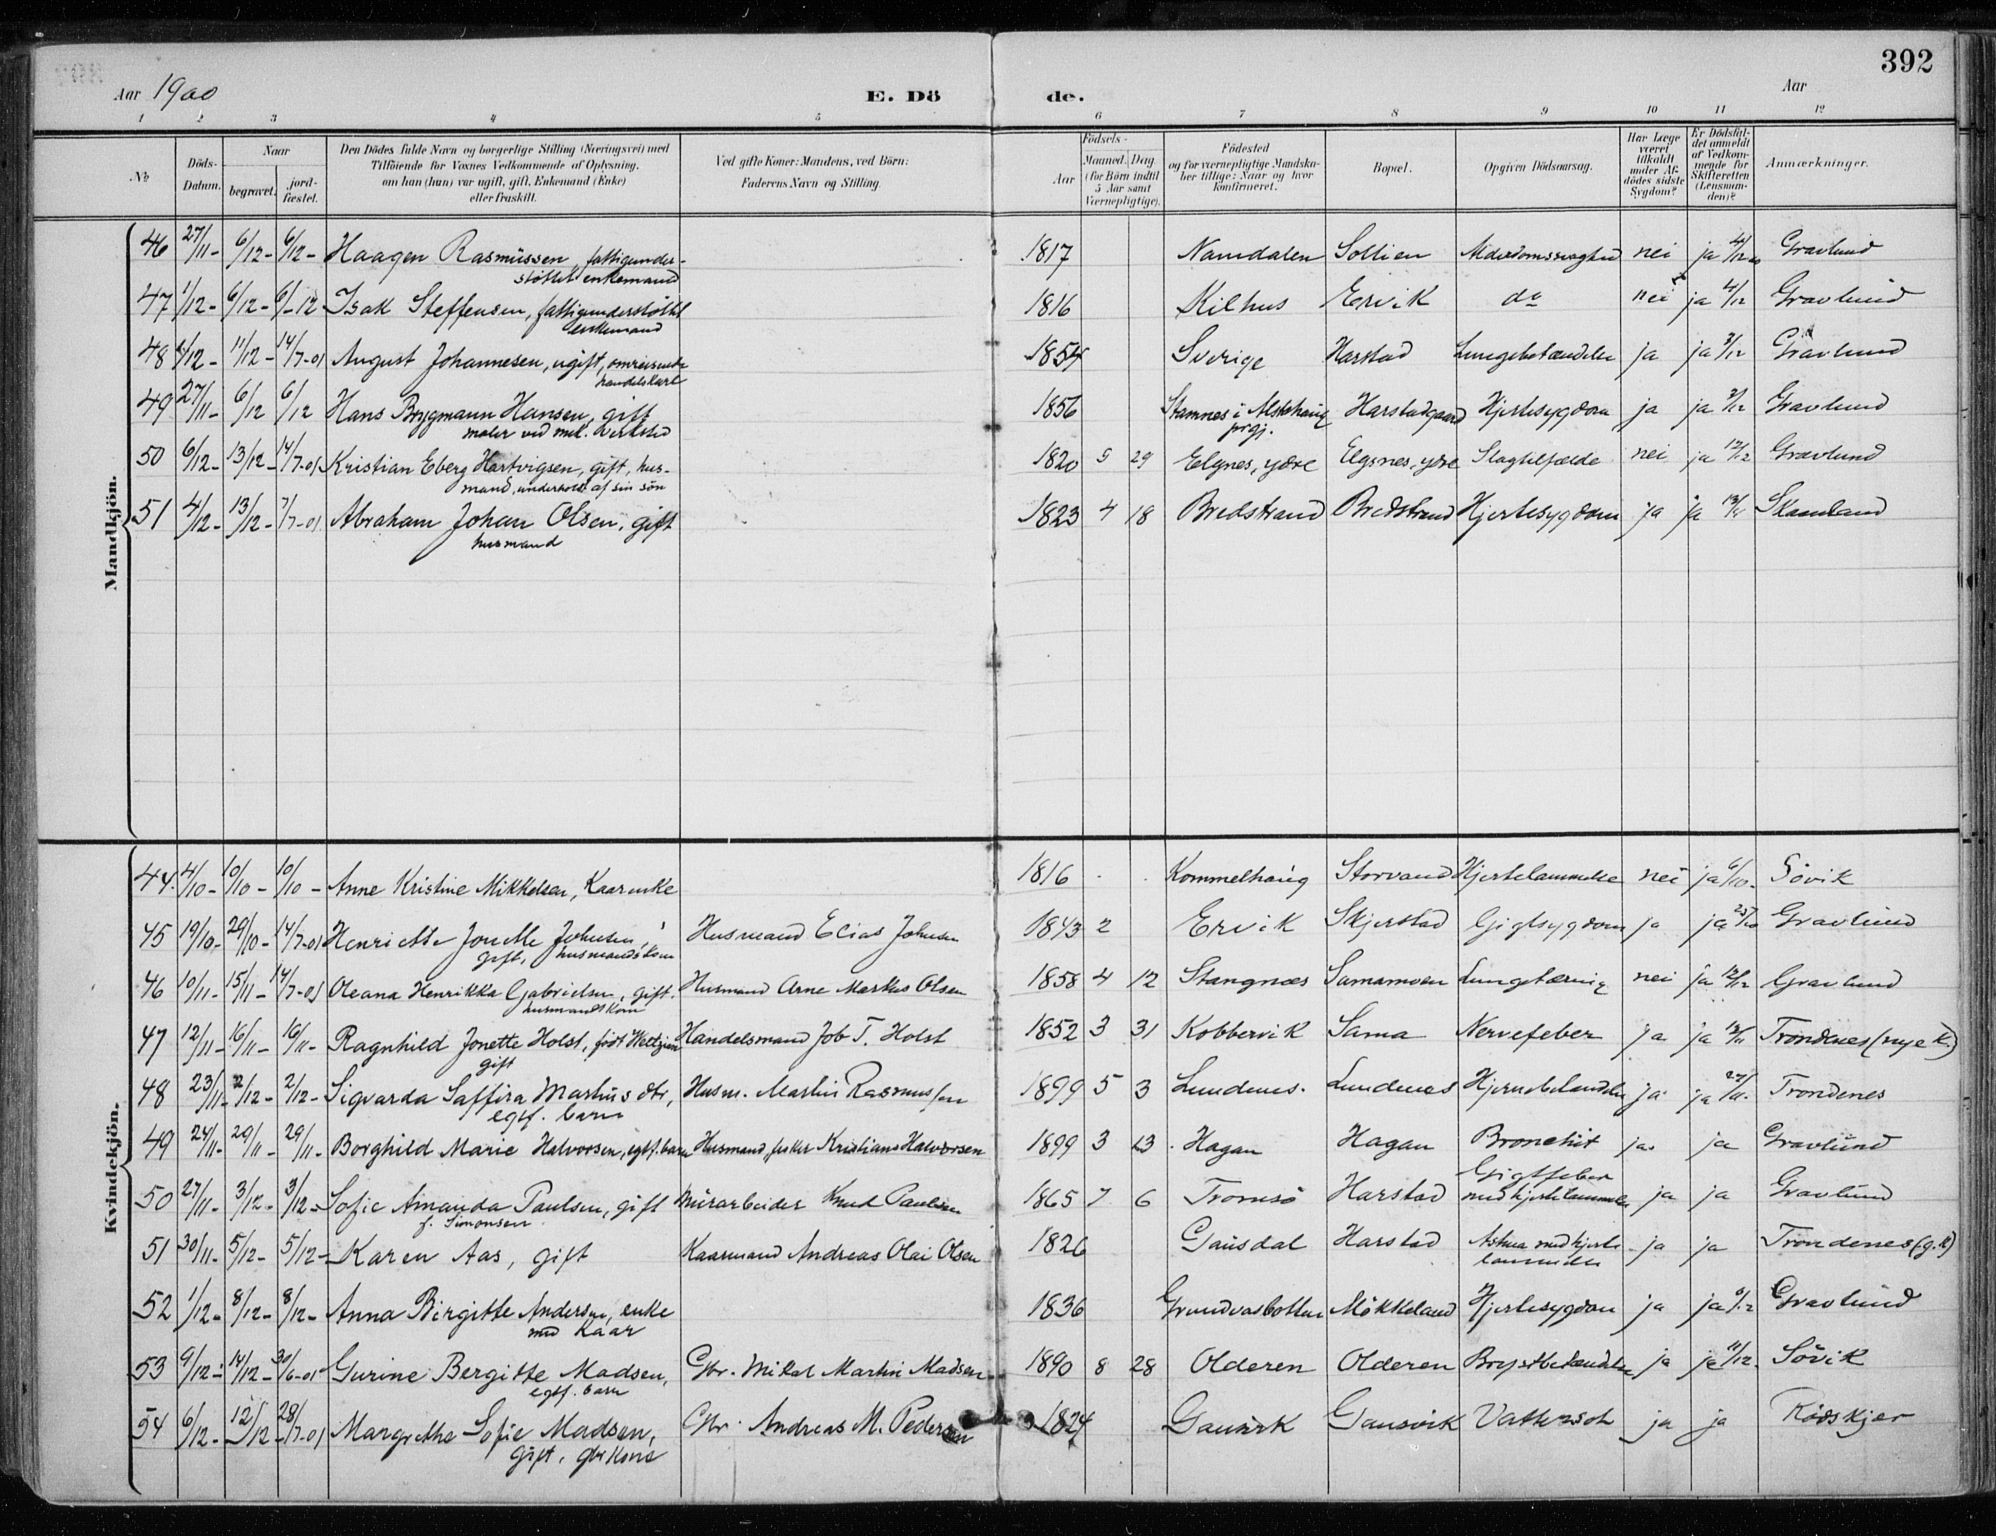 392
Aar 1900 E. Dö de. Aar
1 2 3 4 5 6 7 8 9 10 11 12
No. Döds-Datum. Naar begravet. jord-fæstet. Den Dödes fulde Navn og borgerlige Stilling (Næringsvei) med Tilföiende for Voxnes Vedkommende af Oplysning, om han (hun) var ugift, gift, Enkemand (Enke) eller fraskilt. Ved gifte Koner: Mandens, ved Börn: Faderens Navn og Stilling. Födsels- Aar Maaned. Dag. (for Börn indtil 5 Aar samt Værnepligtige). Födested og for værnepligtige Mandskaber tillige: Naar og hvor konfirmeret. Bopæl. Opgiven Dödsaarsag. Har Læge været tilkaldt under Afdödes sidste Sygdom? Er Dödsfaldet anmeldt af Vedkommende for Skifteretten (Lensmanden)? Anmærkninger.
Mandkjön.
46 27/11- 6/12- 6/12- Haagen Rasmussen, fattigunder- 1817 Namdalen Sollien Alderdomssvaghed nei ja 4/12 Gravlund
støttet enkemand
47 1/12- 6/12- 6/-12 Isak Steffensen, fattigunderstøttet 1816 Kilhus Ervik do nei ja 4/12 Gravlund
enkemand
48 4/12- 11/12- 14/7-01 August Johannesen, ugift, omreisende 1854 Sverige Harstad Lungebetændelse ja ja 3/12 Gravlund
handelskarl
49 27/11- 6/12 6/12 Hans Brygmann Hansen, gift 1856 Stamnes i Alstahaug Harstadgaard Hjertesygdom ja ja 3/12 Gravlund
maler ved mek. Verksted prgj.
50 6/12- 13/12- 14/7-01 Kristian Eberg Hartvigsen, gift, hus- 1820 5 29 Elgnes, ydre Elgsnes, ydre Slagtilfælde nei ja 12/12 Gravlund
mand, underholdt af sin sön
51 4/12- 13/12- 7/7-01 Abraham Johan Olsen, gift 1823 4 18 Bredstrand Bredstrand Hjertesygdom ja ja Skaanland
husmand
Kvindekjön.
44. 4/10- 10/10- 10/10- Anne Kristine Mikkelsen, Kaarenke 1816 Kommelhaug Storvand Hjertelammelse nei ja 6/10- Sövik
45 19/10- 29/10- 14/7-01 Henriette Jonette Johnsen, Husmand Elias Johnsen 1843 2 Ervik Skjerstad Gigtsygdom ja ja 23/10 Gravlund
gift, husmandskone
46 10/11- 15/11- 14/7-01 Oleana Henrikka Gabrielsen, gift. Husmand Arne Markus Olsen 1858 4 12 Stangnæs Samamoen Lungetæring nei ja 12/12 Gravlund
husmandskone
47 12/11- 16/11- 16/11- Ragnhild Jonette Holst, født Weltzien Handelsmand Job T. Holst 1852 3 31 Kobbervik Sama Nervefeber ja ja 13/11 Trondenes (nye k.)
gift
48 23/11- 2/12- 2/12- Sigvarda Saffira Martinsdtr, Husm. Martin Rasmussen 1899 5 3 Lundenes. Lundenes Hjernebetændelse ja ja 27/11- Trondenes
egtf. barn
49 24/11- 29/11- 29/11- Borghild Marie Halvorsen, egtf. barn Husmand, fisker Kristians Halvorsen 1899 3 13 Hagan Hagan Bronchit ja. ja Gravlund
50 27/11- 3/12- 3/12- Sofie Amanda Paulsen, gift Murarbeider Knud Paulsen 1865 7 6 Tromsö Harstad Gigtfeber med hjertelammelse ja ja Gravlund
f. Simonsen
51 30/11- 5/12- 5/12- Karen Aas, gift Kaarmand Andreas Olai Olsen 1826 Gausdal Harstad Asthma med hjerte- ja ja Trondenes (g.k)
lammelse
52 1/12- 8/12- 8/12- Anna Birgitte Andersen, enke 1836 Grundvasbotten Mökkeland Hjertesygdom ja ja 6/12 Gravlund
med kaar
53 9/12- 14/12- 30/6-01 Gurine Bergitte Madsen, Gbr. Mikal Martin Madsen 1890 8 28 Olderen Olderen Brystbetændelse ja ja 11/12- Sövik
egtf. barn
54 6/12- 12/12 28/7-01 Margrethe Sofie Madsen, Gbr. Andreas M. Pedersen 1824 Gausvik Gausvik Vattersot ja ja Rödskjer
gift, gbr kone